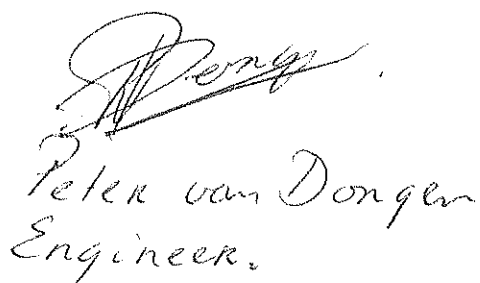 Peter van Dongen
Engineer.